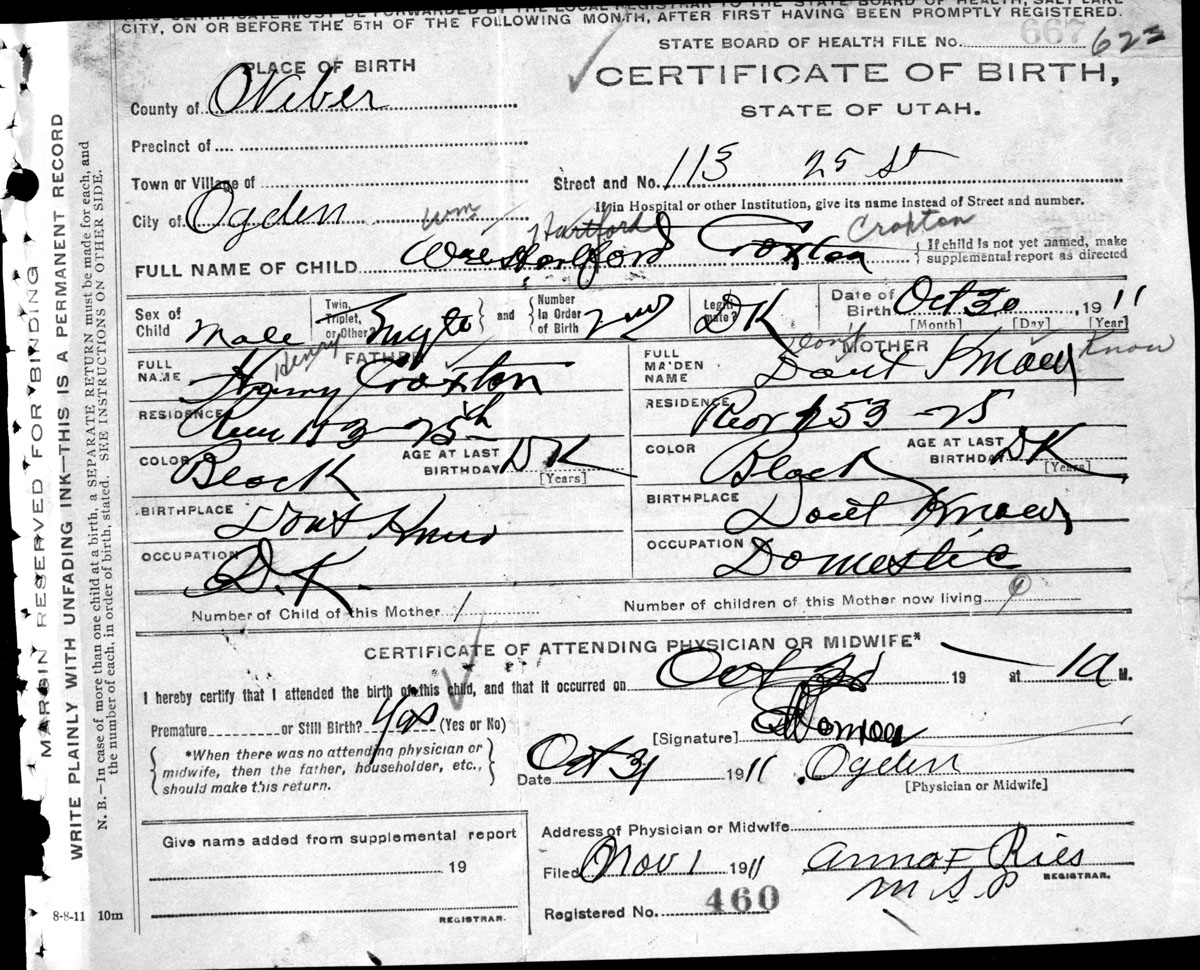 CITY, ON OR BEFORE THE 5TH OF THE FOLLOWING MONTH, AFTER FIRST HAVING BEEN PROMPTLY REGISTERED.
STATE BOARD OF HEALTH FILE NO. 667 623
PLACE OF BIRTH
CERTIFICATE OF BIRTH,
County of Weber
STATE OF UTAH.
Precinct of
Town or Village of
Street and No. 113 25 St
City of Ogden
If in Hospital or other Institution, give its name instead of Street and number.
Wm Hartford Croxton
FULL NAME OF CHILD Wm Hartford Croxton
If child is not yet named, make supplemental report as directed
Sex of Child Male
Twin, Triplet, or Other?
and
Number In Order of Birth 2nd
Legitimate? DK
Date of Birth Oct 30, 1911
[Month] [Day] [Year]
FATHER
FULL NAME Henry Croxton
Henry
RESIDENCE Rear 113 - 25th
COLOR Black
AGE AT LAST BIRTHDAY DK
[Years]
BIRTHPLACE Dont Know
OCCUPATION D.K.
MOTHER
FULL MAIDEN NAME Dont Know
Don't Know
RESIDENCE Rear 153 - 25
COLOR Black
AGE AT LAST BIRTHDAY DK
[Years]
BIRTHPLACE Dont Know
OCCUPATION Domestic
Number of Child of this Mother 1
Number of children of this Mother now living
CERTIFICATE OF ATTENDING PHYSICIAN OR MIDWIFE*
I hereby certify that I attended the birth of this child, and that it occurred on Oct 19 at 1 a M.
Premature or Still Birth? Yes (Yes or No)
[Signature]
*When there was no attending physician or midwife, then the father, householder, etc., should make this return.
Date Oct 31 1911 Ogden
[Physician or Midwife]
Give name added from supplemental report
19
REGISTRAR.
Address of Physician or Midwife
Filed Nov 1 1911 Anna F Ries
REGISTRAR.
Registered No. 460
8-8-11 10m
MARGIN RESERVED FOR BINDING
WRITE PLAINLY WITH UNFADING INK—THIS IS A PERMANENT RECORD
N. B.—In case of more than one child at a birth, a SEPARATE RETURN must be made for each, and
the number of each, in order of birth, stated. SEE INSTRUCTIONS ON OTHER SIDE.